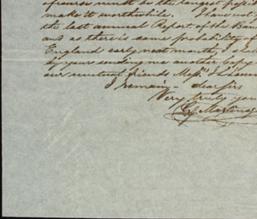 make it worthwhile. I have not
the last annual Report of the
and as there is some probability of
England early next month, I
by your sending me another Copy
our mutual friends Messrs
I remain - dear sirs
Very truly your